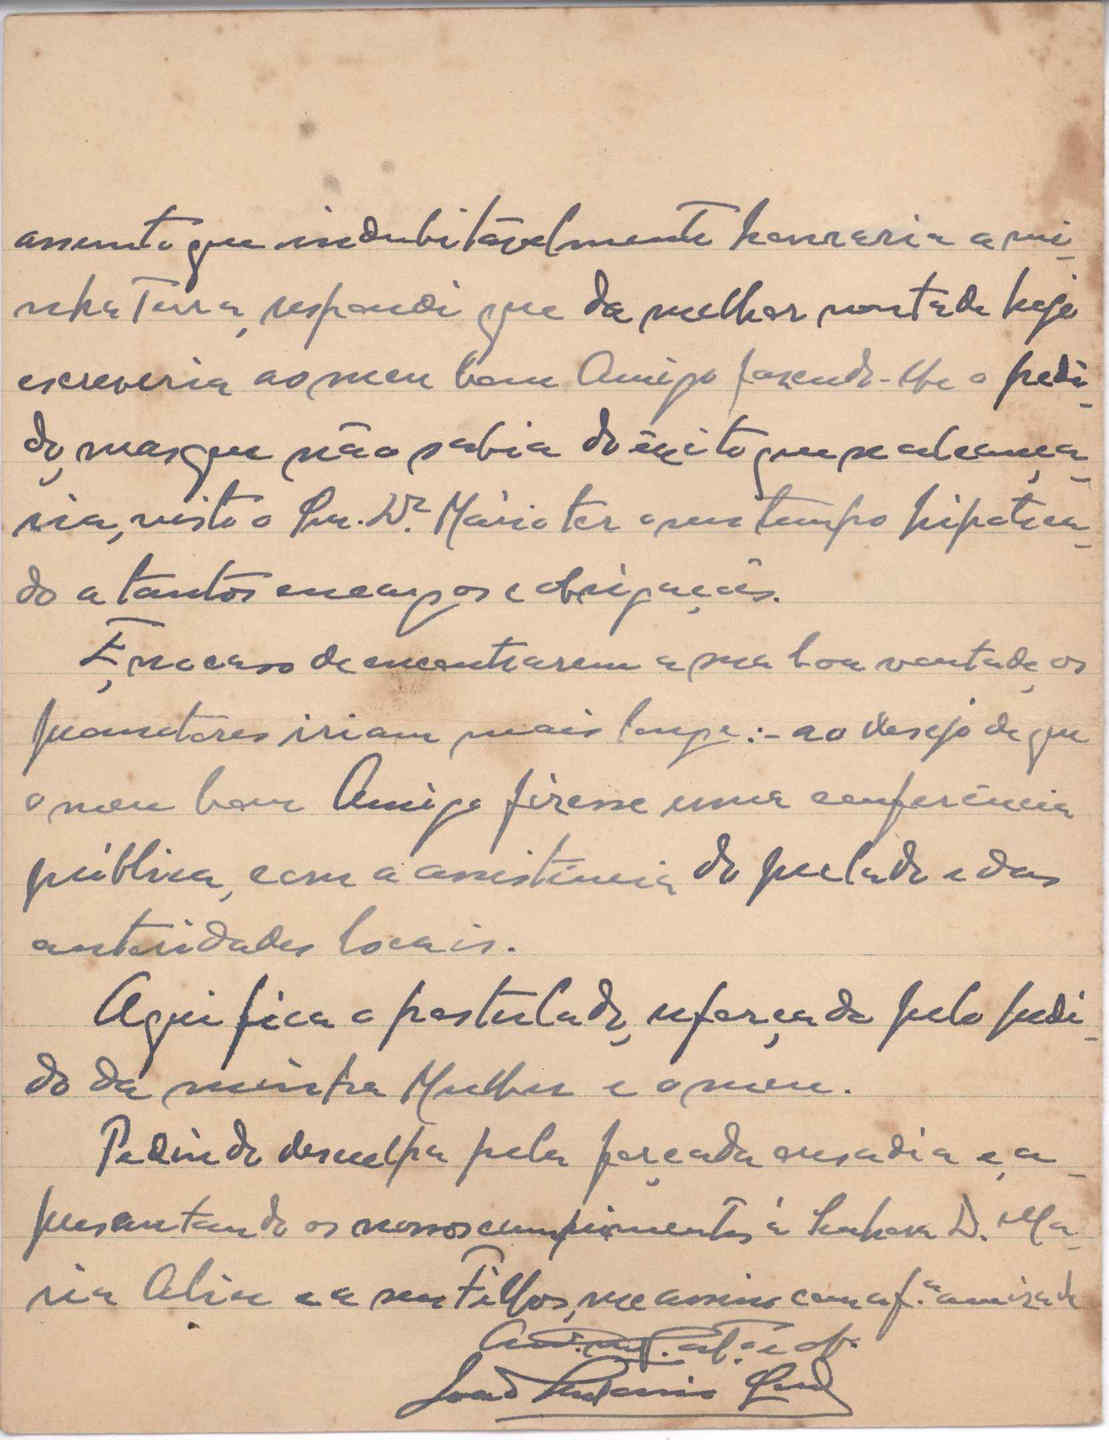 assunto que indubitávelmente honraria a mi-
nha Terra, respondi que da melhor vontade hoje
escreveria ao meu bom Amigo fazendo-lhe o pedi-
do, mas que não sabia do êxito que se alcança-
ria, visto o Snr. Dr. Mário ter o seu tempo hipoteca-
do a tantos encargos e obrigações.
E, no caso de encontrarem a sua boa vontade, os
promotores iriam mais longe: - ao desejo de que
o meu bom Amigo fizesse uma conferência
pública, com a assistência do prelado e das
autoridades locais.
Aqui fica o postulado, reforçado pelo pedi-
do da minha Mulher e o meu.
Pedindo desculpa pela forçada ousadia e, a-
presentando os nossos cumprimentos à Senhora D. Ma-
ria Alice e a seus Filhos, me assino com a f.a amizade
e ob.
João António